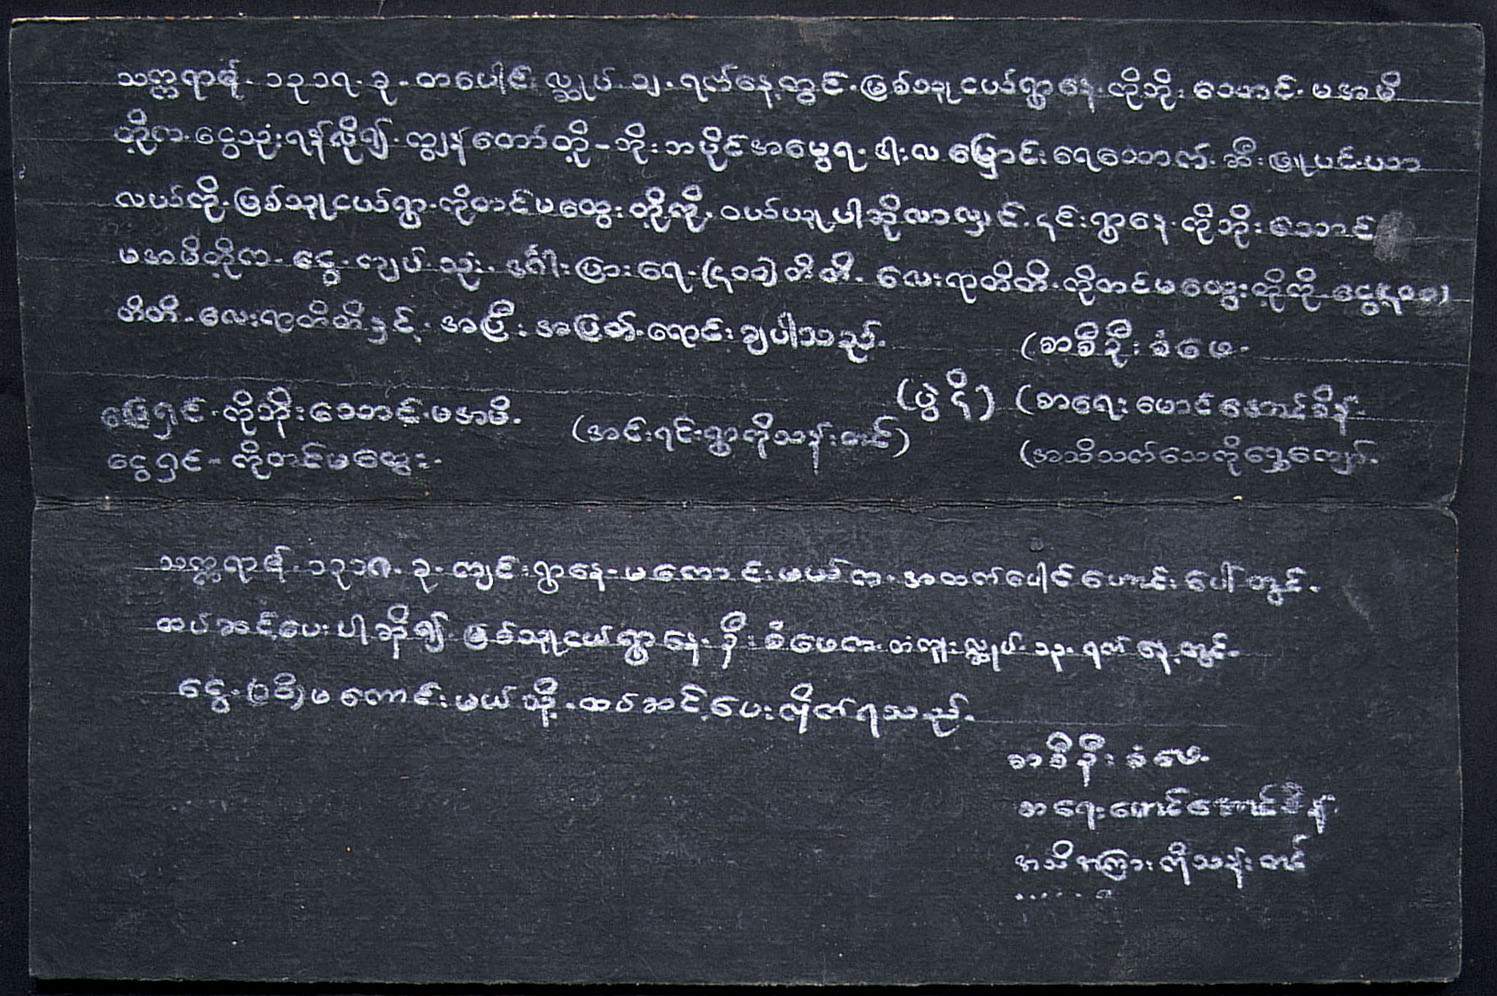 သက္ကရာဇ်. ၁၃၁၇. ခု. တပေါင်း လ္ဆုပ်. ၁၂. ရက်နေ့တွင်. ဖြစ်သူငယ်ရွာနေ. ကိုဘိုးသောင်. မအမိ
တို့က. ငွေသုံးရန်လို၍. ကျွန်တော်တို့ - ဘိုးဘပိုင်အမွေရ. ဒါးလ မြှောင်းရေသောက်. ဆီးဖြူပင်.
လယ်ကို. ဖြစ်သူငယ်ရွာ. ကိုတင်မထွေးတို့ကို. ဝယ်ယူပါဆိုလာလျှင်. ၎င်းရွာနေ. ကိုဘိုးသောင်
မအမိတို့က. ငွေ. ကျပ်သုံး. ဒင်္ဂါးပြားရေ. (၄၀၀) တိတိ. လေးရာတိတိ. ကိုတင်မထွေးတို့ကို. ငွေ (၄၀၀)
တိတိ. လေးရာတိတိနှင့်. အပြီးအပြတ်. ရောင်းချပါသည်.
(စာစီဦးခံဖေ.
(ပွဲကို) (စာရေးမောင်အောင်စိန်.
မြေရှင်. ကိုဘိုးသောင်. မအမိ. (အင်းရင်းရွာကိုသန်းတင်)
ငွေရှင် - ကိုတင်မထွေး. (အသိသက်သေကိုရွှေကျော်.
သက္ကရာဇ်. ၁၃၁၈. ခု. ကျင်းရွာနေ. မကောင်းမယ်က. အထက်ပေါင်ဟောင်းပေါ်တွင်.
ထပ်ဆင့်ပေးပါဆို၍. ဖြစ်သူငယ်ရွာနေ. ဦးခံဖေက. တံကူးလ္ဆုပ်. ၁၃. ရက်နေ့တွင်.
ငွေ. မကောင်းမယ်သို့. ထပ်ဆင့်ပေးလိုက်ရသည်.
စာစီဦးခံဖေ.
စာရေးမောင်အောင်စိန်.
အသိအကြားကိုသန်းတင်